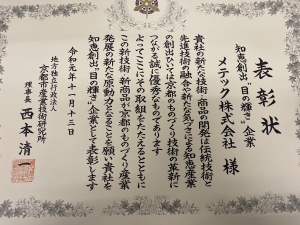 表彰状
知恵創出“目の輝き”企業
メテック株式会社 様
貴社の新たな技術・商品の開発は伝統技術と
先進技術の融合や新たな気づきによる知恵産業
の創出ひいては京都のものづくり技術の革新に
つながる誠に優秀なものであります
よってここにその取組をたたえるとともに
この新技術・新商品が京都のものづくり産業
発展の新たな原動力となることを願い貴社を
知恵創出“目の輝き”企業として表彰します
令和元年十一月十二日
地方独立行政法人
京都市産業技術研究所
理事長 西本清一